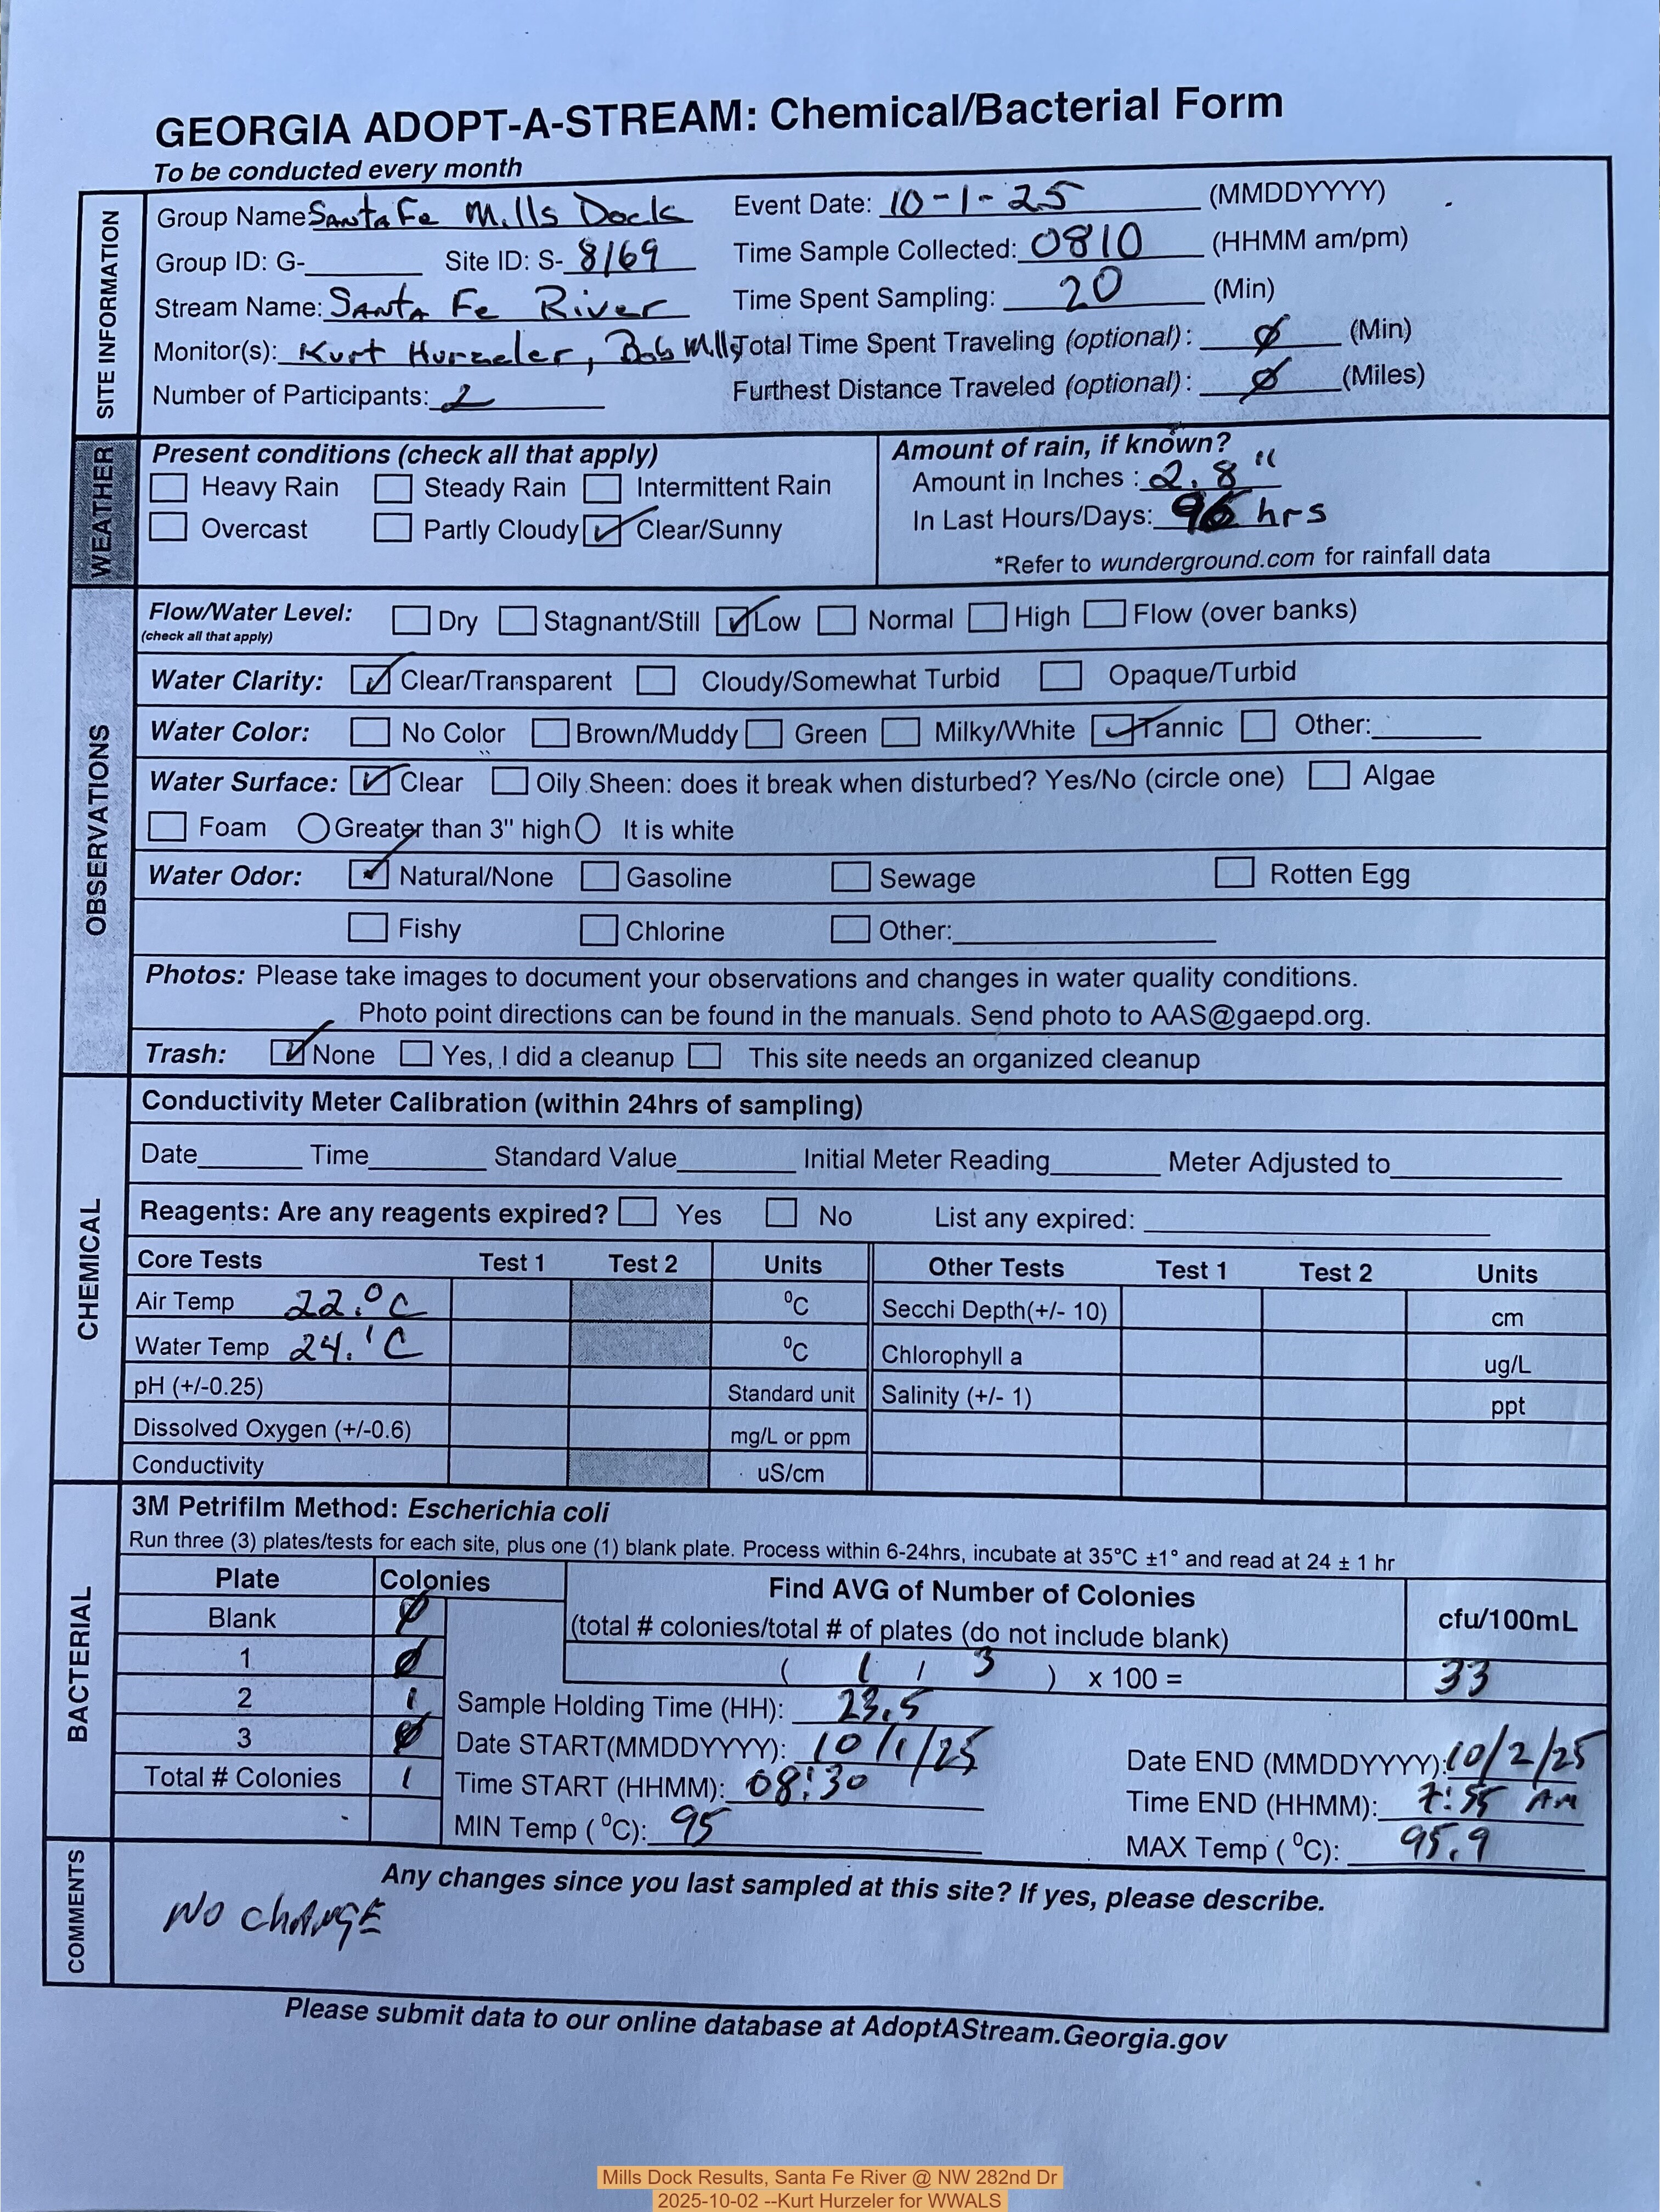 GEORGIA ADOPT-A-STREAM: Chemical/Bacterial Form
To be conducted every month
SITE INFORMATION
Group Name Santa Fe Mills Dock Event Date: 10-1-25 (MMDDYYYY)
Group ID: G-________ Site ID: S- 8169 Time Sample Collected: 0810 (HHMM am/pm)
Stream Name: Santa Fe River Time Spent Sampling: 20 (Min)
Monitor(s): Kurt Hurzeler, Bob Mills Total Time Spent Traveling (optional): Ø (Min)
Number of Participants: 2 Furthest Distance Traveled (optional): Ø (Miles)
WEATHER
Present conditions (check all that apply) Amount of rain, if known?
Heavy Rain Steady Rain Intermittent Rain Amount in Inches : 2.8 "
Overcast Partly Cloudy ✓ Clear/Sunny In Last Hours/Days: 96 hrs
*Refer to wunderground.com for rainfall data
OBSERVATIONS
Flow/Water Level: Dry Stagnant/Still ✓ Low Normal High Flow (over banks)
(check all that apply)
Water Clarity: ✓ Clear/Transparent Cloudy/Somewhat Turbid Opaque/Turbid
Water Color: No Color Brown/Muddy Green Milky/White ✓ Tannic Other:________
Water Surface: ✓ Clear Oily Sheen: does it break when disturbed? Yes/No (circle one) Algae
Foam Greater than 3" high It is white
Water Odor: ✓ Natural/None Gasoline Sewage Rotten Egg
Fishy Chlorine Other:________
Photos: Please take images to document your observations and changes in water quality conditions.
Photo point directions can be found in the manuals. Send photo to AAS@gaepd.org.
Trash: ✓ None Yes, I did a cleanup This site needs an organized cleanup
CHEMICAL
Conductivity Meter Calibration (within 24hrs of sampling)
Date________ Time________ Standard Value________ Initial Meter Reading________ Meter Adjusted to________
Reagents: Are any reagents expired? Yes No List any expired: ________
Core Tests Test 1 Test 2 Units Other Tests Test 1 Test 2 Units
Air Temp 22.°C °C Secchi Depth(+/- 10) cm
Water Temp 24.'C °C Chlorophyll a ug/L
pH (+/-0.25) Standard unit Salinity (+/- 1) ppt
Dissolved Oxygen (+/-0.6) mg/L or ppm
Conductivity uS/cm
BACTERIAL
3M Petrifilm Method: Escherichia coli
Run three (3) plates/tests for each site, plus one (1) blank plate. Process within 6-24hrs, incubate at 35°C ±1° and read at 24 ± 1 hr
Plate Colonies Find AVG of Number of Colonies cfu/100mL
Blank Ø (total # colonies/total # of plates (do not include blank)
1 Ø ( 1 / 3 ) x 100 = 33
2 1 Sample Holding Time (HH): 23.5
3 Ø Date START(MMDDYYYY): 10/1/25 Date END (MMDDYYYY): 10/2/25
Total # Colonies 1 Time START (HHMM): 08:30 Time END (HHMM): 7:55 AM
MIN Temp (°C): 95 MAX Temp (°C): 95.9
COMMENTS
Any changes since you last sampled at this site? If yes, please describe.
No change
Please submit data to our online database at AdoptAStream.Georgia.gov
Mills Dock Results, Santa Fe River @ NW 282nd Dr
2025-10-02 --Kurt Hurzeler for WWALS